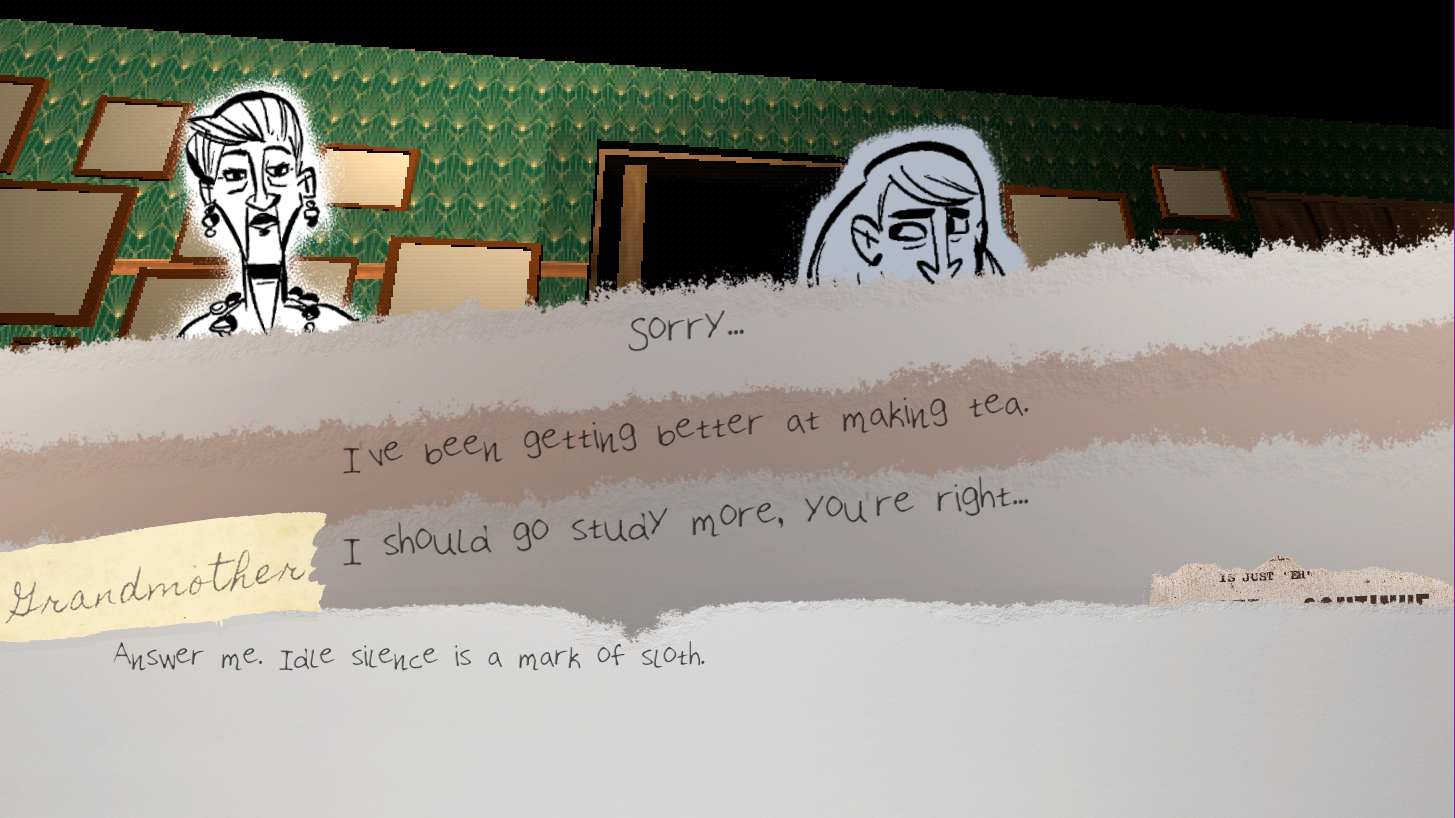 Sorry...
I've been getting better at making tea.
I should go study more, you're right...
Grandmother
IS JUST 'EH'
Answer me. Idle silence is a mark of sloth.